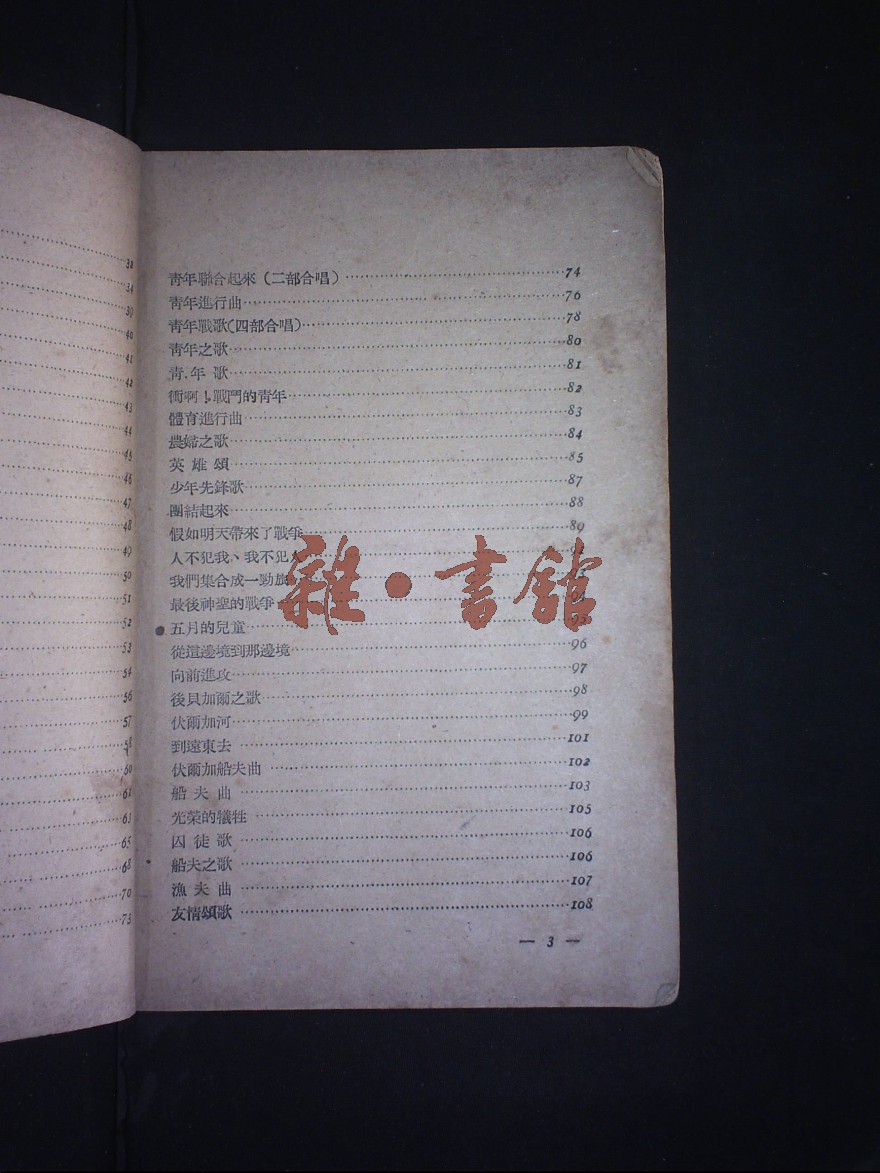 32
34
39
40
41
42
43
44
45
46
47
48
49
50
51
52
53
54
56
57
58
60
61
63
65
68
70
73
青年聯合起來（二部合唱）…………74
青年進行曲…………76
青年戰歌(四部合唱)…………78
青年之歌…………80
青年歌…………81
衝啊！戰鬥的青年…………82
體育進行曲…………83
農婦之歌…………84
英雄頌…………85
少年先鋒歌…………87
團結起來…………88
假如明天帶來了戰爭…………89
人不犯我、我不犯人…………92
我們集合成一勁旅…………
最後神聖的戰爭…………94
五月的兒童…………95
從這邊境到那邊境…………96
向前進攻…………97
後貝加爾之歌…………98
伏爾加河…………99
到遠東去…………101
伏爾加船夫曲…………102
船夫曲…………103
光榮的犧牲…………105
囚徒歌…………106
船夫之歌…………106
漁夫曲…………107
友情頌歌…………108
— 3 —
雜·書館